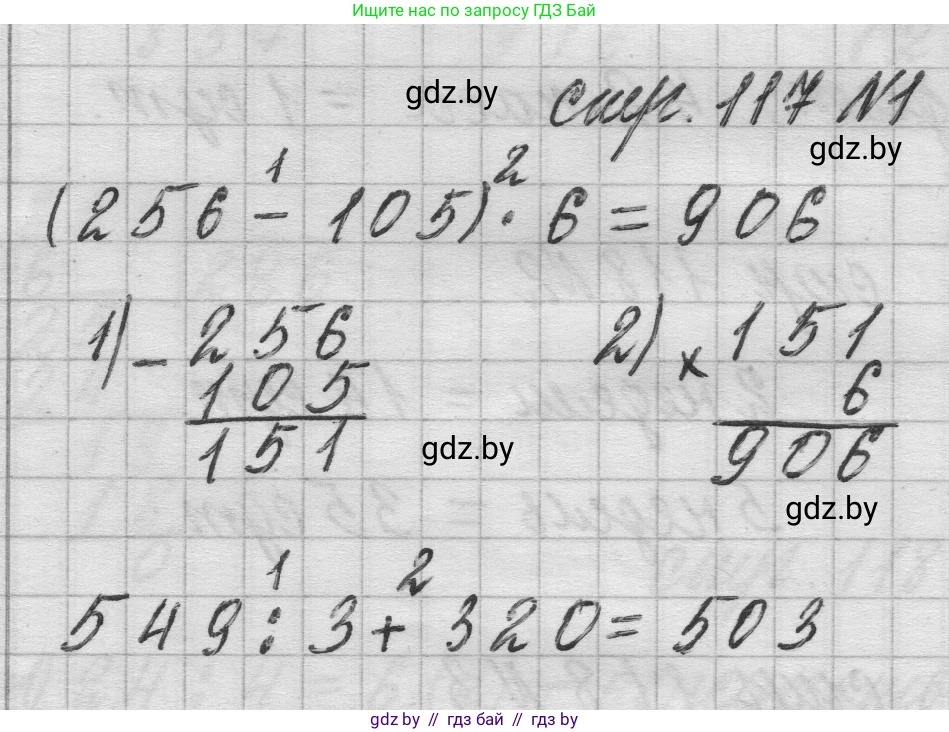 Ищите нас по запросу ГДЗ Бай
gdz.by
стр. 117 №1
gdz.by
1 2
(256 - 105) · 6 = 906
1) - 256 2) × 151
105 6
151 906
gdz.by
gdz.by
1 2
549 : 3 + 320 = 503
gdz.by // гдз бай // гдз by